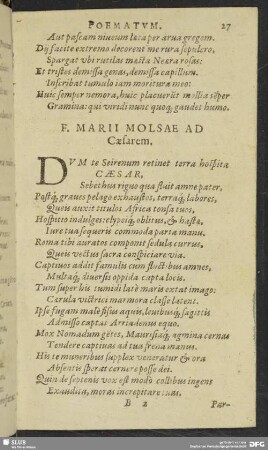 POEMATVM. 27
Aut pascam niueum lata per arua gregem.
Dij facite extremo decorent me rura sepulcro,
Spargat vbi rutilas mœsta Neæra rosas:
Et tristes demissa genas, demissa capillum.
Inscribat tumulo iam moritura meo:
Huic semper nemora, huic placuerũt mollia sẽper
Gramina: qui viridi nunc quoq; gaudet humo.
F. MARII MOLSAE AD
Cæsarem.
DVM te Seirenum retinet terra hospita
CÆSAR,
Sebethus riguo qua fluit amne pater,
Postq; graues pelago exhaustos, terraq; labores,
Queis auxit titulos Africa tonsa tuos,
Hospitio indulges: clypeiq; oblitus, & hastæ,
Iure tua sequeris commoda parta manu.
Roma tibi auratos componit sedula currus,
Queis vectus sacra conspiciare via.
Captiuos addit famulis cum fluctibus amnes,
Multaq; diuersis oppida capta locis,
Tum super his tumidi latè maris extat imago:
Cærula victrici marmora classe lacent.
Ipse fugam malè fisus aquis, leuibusq; sagittis
Admisso captat Arriadenus equo.
Mox Nomadum gẽtes, Maurisiaq; agmina cernas
Tendere captiuas ad tua frena manus.
His te muneribus supplex veneratur & ora
Absentis sperat cernere posse dei.
Quin de septenis vox est modò collibus ingens
Exaudita, moras increpitare tuas.
B 2 Par-